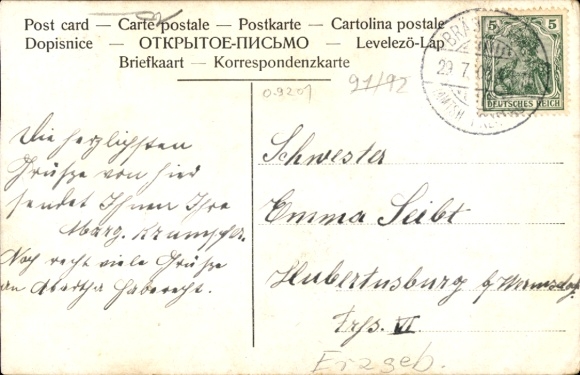 Post card — Carte postale — Postkarte — Cartolina postale
Dopisnice — ОТКРЫТОЕ-ПИСЬМО — Levelező-Lap
Briefkaart — Korrespondenzkarte
91/92
09201
5 5
DEUTSCHES REICH
29.7.
Die herzlichsten
Grüße von hier
sendet Ihnen Ihre
Marg.
Noch recht viele Grüße
an Haberecht.
Schwester
Emma Seibt
Hubertusburg b/ Wermsdorf
VI
Erzgeb.